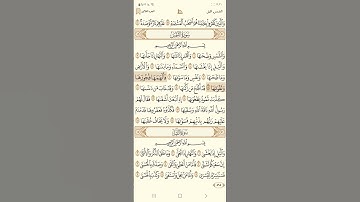 وَٱلَّذِينَ كَفَرُوا۟ بِـَٔايَـٰتِنَا هُمْ أَصْحَـٰبُ ٱلْمَشْـَٔمَةِ عَلَيْهِمْ نَارٌ مُّؤْصَدَةٌ
سُورَةُ الشَّمْسِ
بِسْمِ ٱللَّهِ ٱلرَّحْمَـٰنِ ٱلرَّحِيمِ
وَٱلشَّمْسِ وَضُحَىٰهَا وَٱلْقَمَرِ إِذَا تَلَىٰهَا وَٱلنَّهَارِ إِذَا جَلَّىٰهَا
وَٱلَّيْلِ إِذَا يَغْشَىٰهَا وَٱلسَّمَآءِ وَمَا بَنَىٰهَا وَٱلْأَرْضِ
وَمَا طَحَىٰهَا وَنَفْسٍ وَمَا سَوَّىٰهَا فَأَلْهَمَهَا فُجُورَهَا
وَتَقْوَىٰهَا قَدْ أَفْلَحَ مَن زَكَّىٰهَا وَقَدْ خَابَ مَن دَسَّىٰهَا
كَذَّبَتْ ثَمُودُ بِطَغْوَىٰهَآ إِذِ ٱنۢبَعَثَ أَشْقَىٰهَا فَقَالَ لَهُمْ
رَسُولُ ٱللَّهِ نَاقَةَ ٱللَّهِ وَسُقْيَـٰهَا فَكَذَّبُوهُ فَعَقَرُوهَا فَدَمْدَمَ
عَلَيْهِمْ رَبُّهُم بِذَنۢبِهِمْ فَسَوَّىٰهَا وَلَا يَخَافُ عُقْبَـٰهَا
سُورَةُ اللَّيْلِ
بِسْمِ ٱللَّهِ ٱلرَّحْمَـٰنِ ٱلرَّحِيمِ
وَٱلَّيْلِ إِذَا يَغْشَىٰ وَٱلنَّهَارِ إِذَا تَجَلَّىٰ وَمَا خَلَقَ ٱلذَّكَرَ وَٱلْأُنثَىٰٓ
إِنَّ سَعْيَكُمْ لَشَتَّىٰ فَأَمَّا مَنْ أَعْطَىٰ وَٱتَّقَىٰ وَصَدَّقَ بِٱلْحُسْنَىٰ
فَسَنُيَسِّرُهُۥ لِلْيُسْرَىٰ وَأَمَّا مَنۢ بَخِلَ وَٱسْتَغْنَىٰ وَكَذَّبَ بِٱلْحُسْنَىٰ